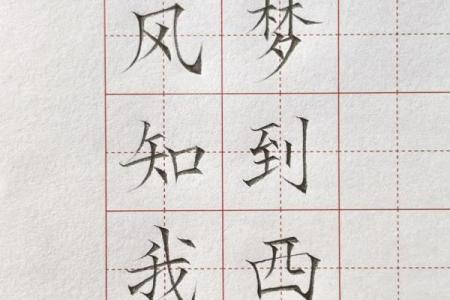 风知我
梦到西